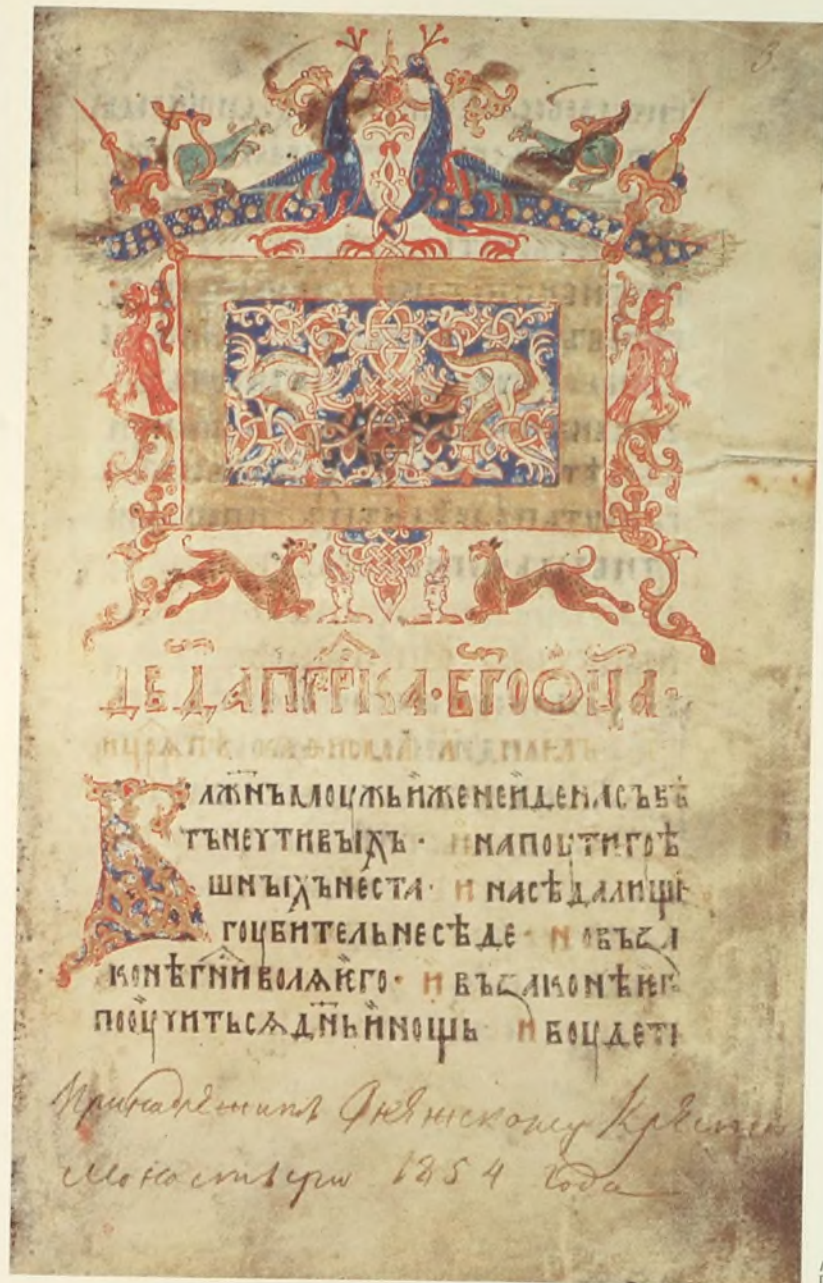 3
Д҃ЕДА ПРР҃КА · БГ҃ООЦ҃А ·
БЛАЖН҃ЪМОѱЖЬИЖЕНЕИДЕНАСЪВѢ
ТЪНЕЧТИВЫХЪ · И НАПОУТИГРѢ
ШНЫХЪНЕСТА · И НАСѢДАЛИЩИ
ГОУБИТЕЛЬНЕСѢДЕ · Н ОВЪЗА
КОНѢГН҃ИВОЛѦѤГО · И ВЪЗАКОНѢѤГ
ПООУЧИТЬСѦДН҃ЬИНОЩЬ И БОУДЕТЬ
Принадлежит Онежскому Крестн
Монастырю 1854 года